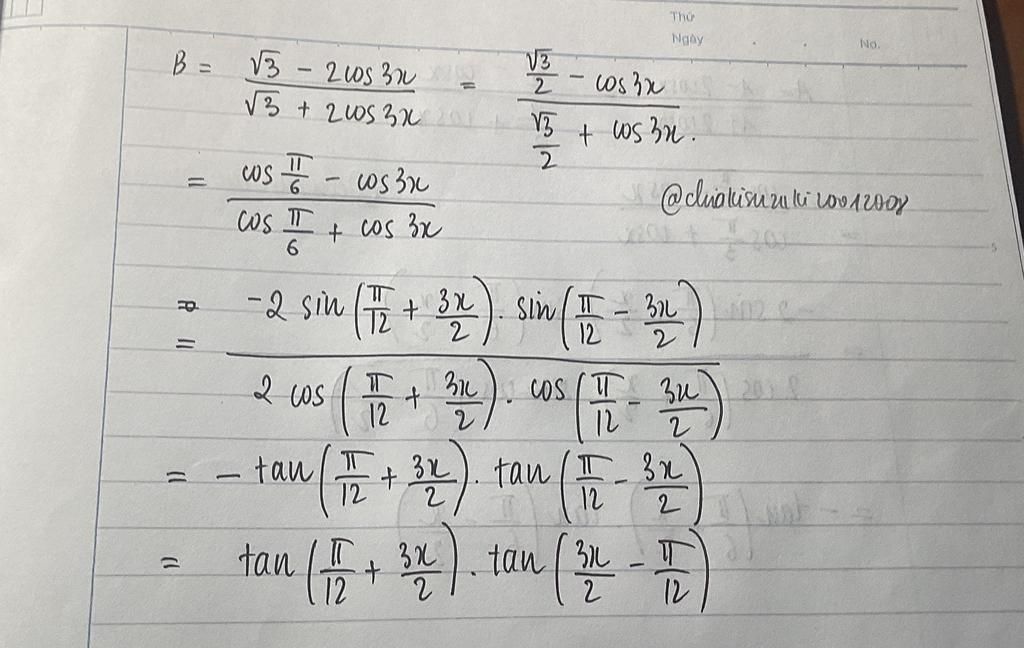 Thứ
Ngày . . No.
B = (√3 - 2cos3x)/(√3 + 2cos3x) = (√3/2 - cos3x)/(√3/2 + cos3x).
= (cos π/6 - cos3x)/(cos π/6 + cos 3x)
= (-2 sin(π/12 + 3x/2) . sin(π/12 - 3x/2))/(2 cos(π/12 + 3x/2) . cos(π/12 - 3x/2))
= - tan(π/12 + 3x/2) . tan(π/12 - 3x/2)
= tan(π/12 + 3x/2) . tan(3x/2 - π/12)